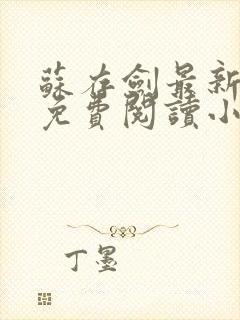 蘇存劍最新
免費閱讀小
丁墨